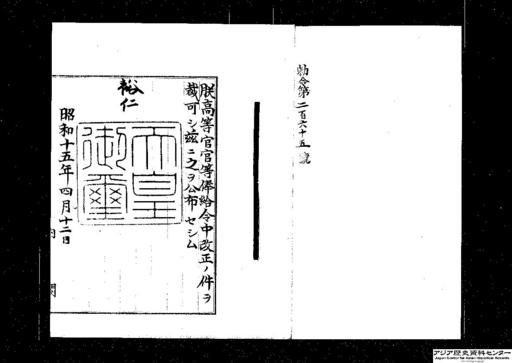 勅令第二百六十五號
朕高等官官等俸給令中改正ノ件ヲ
裁可シ茲ニ之ヲ公布セシム
裕仁
天皇
御璽
昭和十五年四月十二日
内閣
アジア歴史資料センター
Japan Center for Asian Historical Records